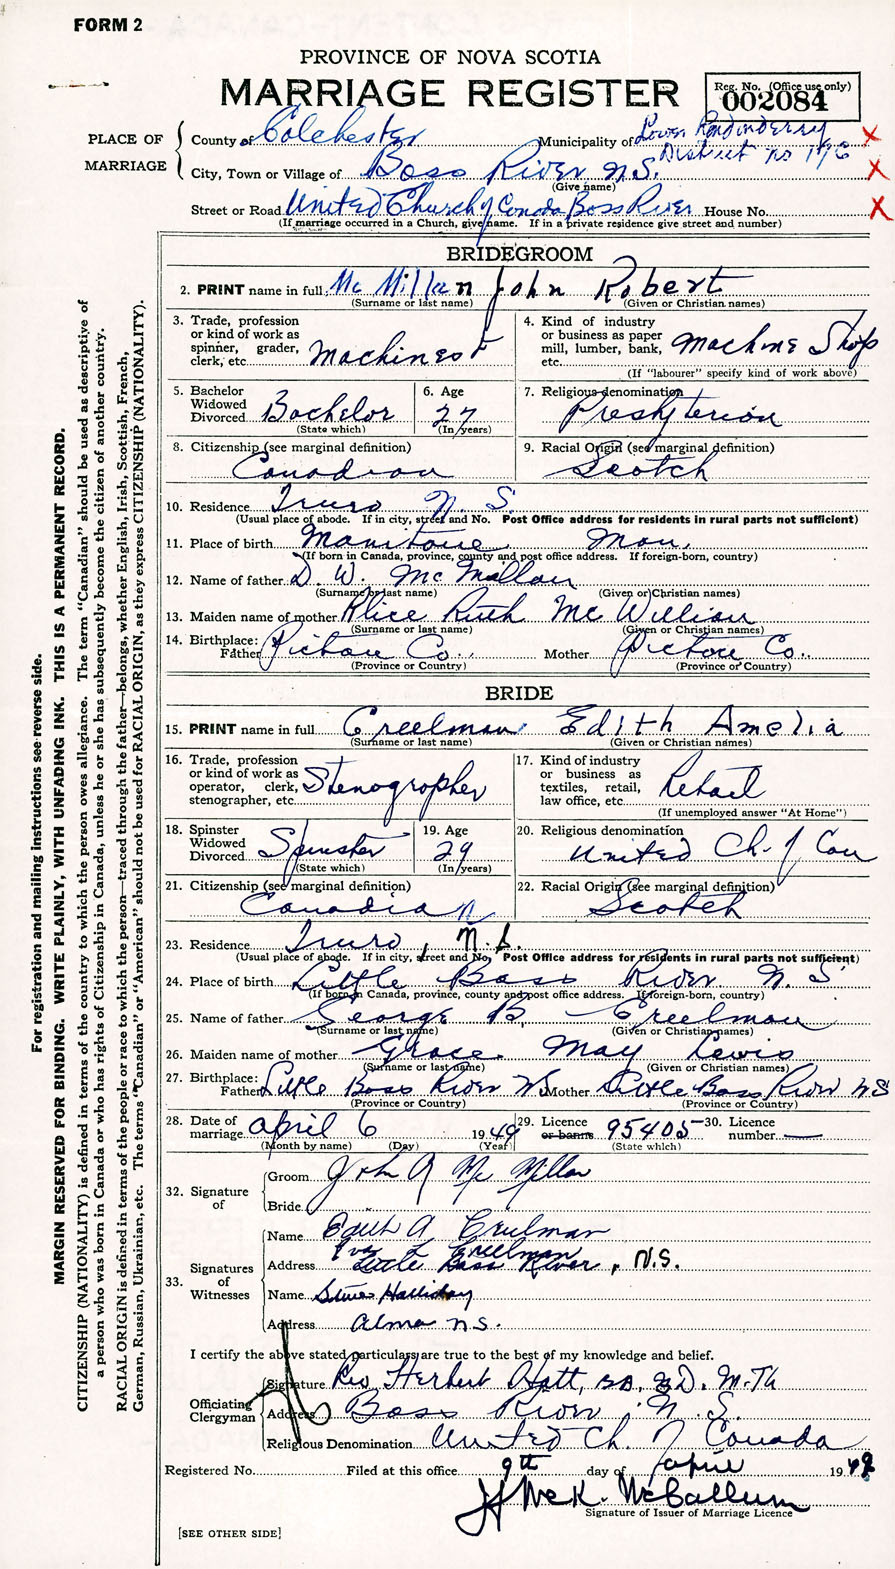 FORM 2
PROVINCE OF NOVA SCOTIA
MARRIAGE REGISTER
Reg. No. (Office use only)
002084
PLACE OF MARRIAGE
County of Colchester Municipality of Lower Londonderry
District no 
City, Town or Village of Bass River N.S.
(Give name)
Street or Road United Church of Canada Bass River House No.
(If marriage occurred in a Church, give name. If in a private residence give street and number)
BRIDEGROOM
2. PRINT name in full: Mc Millan John Robert
(Surname or last name) (Given or Christian names)
3. Trade, profession or kind of work as spinner, grader, clerk, etc. Machinest
4. Kind of industry or business as paper mill, lumber, bank, etc. Machine Shop
(If "labourer" specify kind of work above)
5. Bachelor Widowed Divorced Bachelor
(State which)
6. Age 27
(In years)
7. Religious denomination Presbyterian
8. Citizenship (see marginal definition) Canadian
9. Racial Origin (see marginal definition) Scotch
10. Residence Truro N.S.
(Usual place of abode. If in city, street and No. Post Office address for residents in rural parts not sufficient)
11. Place of birth Man.
(If born in Canada, province, county and post office address. If foreign-born, country)
12. Name of father D. W. Mc Millan
(Surname or last name) (Given or Christian names)
13. Maiden name of mother Alice Ruth Mc William
(Surname or last name) (Given or Christian names)
14. Birthplace: Father Pictou Co. Mother Pictou Co.
(Province or Country) (Province or Country)
BRIDE
15. PRINT name in full Creelman Edith Amelia
(Surname or last name) (Given or Christian names)
16. Trade, profession or kind of work as operator, clerk, stenographer, etc. Stenographer
17. Kind of industry or business as textiles, retail, law office, etc. Retail
(If unemployed answer "At Home")
18. Spinster Widowed Divorced Spinster
(State which)
19. Age 29
(In years)
20. Religious denomination United Ch. of Can
21. Citizenship (see marginal definition) Canadian
22. Racial Origin (see marginal definition) Scotch
23. Residence Truro, N.S.
(Usual place of abode. If in city, street and No. Post Office address for residents in rural parts not sufficient)
24. Place of birth Little Bass River N.S.
(If born in Canada, province, county and post office address. If foreign-born, country)
25. Name of father George B. Creelman
(Surname or last name) (Given or Christian names)
26. Maiden name of mother Grace May Lewis
(Surname or last name) (Given or Christian names)
27. Birthplace: Father Little Bass River NS Mother Little Bass River NS
(Province or Country) (Province or Country)
28. Date of marriage April 6 1949
(Month by name) (Day) (Year)
29. Licence or banns 95405
(State which)
30. Licence number —
32. Signature of
Groom John R Mc Millan
Bride
33. Signatures of Witnesses
Name Edith A Creelman
Eva L Creelman
Address Little Bass River, N.S.
Name Halliday
Address Alma N.S.
I certify the above stated particulars are true to the best of my knowledge and belief.
Officiating Clergyman
Signature Rev. Herbert Hatt, B.A., B.D. M.Th
Address Bass River N.S.
Religious Denomination United Ch. of Canada
Registered No. Filed at this office 9th day of April 1949
Mc K. McCallum
Signature of Issuer of Marriage Licence
[SEE OTHER SIDE]
For registration and mailing instructions see reverse side.
MARGIN RESERVED FOR BINDING. WRITE PLAINLY, WITH UNFADING INK. THIS IS A PERMANENT RECORD.
CITIZENSHIP (NATIONALITY) is defined in terms of the country to which the person owes allegiance. The term "Canadian" should be used as descriptive of
a person who was born in Canada or who has rights of Citizenship in Canada, unless he or she has subsequently become the citizen of another country.
RACIAL ORIGIN is defined in terms of the people or race to which the person—traced through the father—belongs, whether English, Irish, Scottish, French,
German, Russian, Ukrainian, etc. The terms "Canadian" or "American" should not be used for RACIAL ORIGIN, as they express CITIZENSHIP (NATIONALITY).